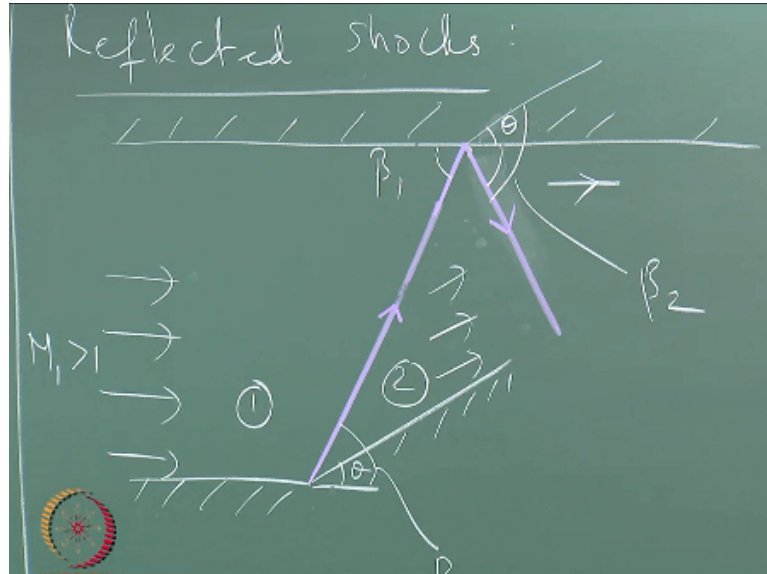 Reflected shocks:
θ
β₁
β₂
M₁>1
①
②
θ